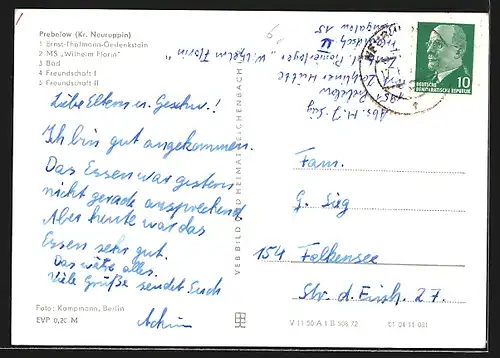 Prebelow (Kr. Neuruppin)
1 Ernst-Thälmann-Gedenkstein
2 MS „Wilhelm Florin"
3 Bad
4 Freundschaft I
5 Freundschaft II
Liebe Eltern u. Geschw.!
Ich bin gut angekommen.
Das Essen war gestern
nicht gerade ansprechend
Aber heute war das
Essen sehr gut.
Das wäre alles.
Viele Grüße sendet Euch
Achim
Foto: Kampmann, Berlin
EVP 0,20 M
VEB BILD UND HEIMAT REICHENBACH
Abs. H. J. Sieg
Prebelow
Zechliner Hütte
Pionierlager „Wilhelm Florin"
15
DEUTSCHE
DEMOKRATISCHE REPUBLIK
10
1951
Fam.
G. Sieg
154 Falkensee
Str. d. Einh. 27.
V 11 50 A 1 B 508 72
01 04 11 081